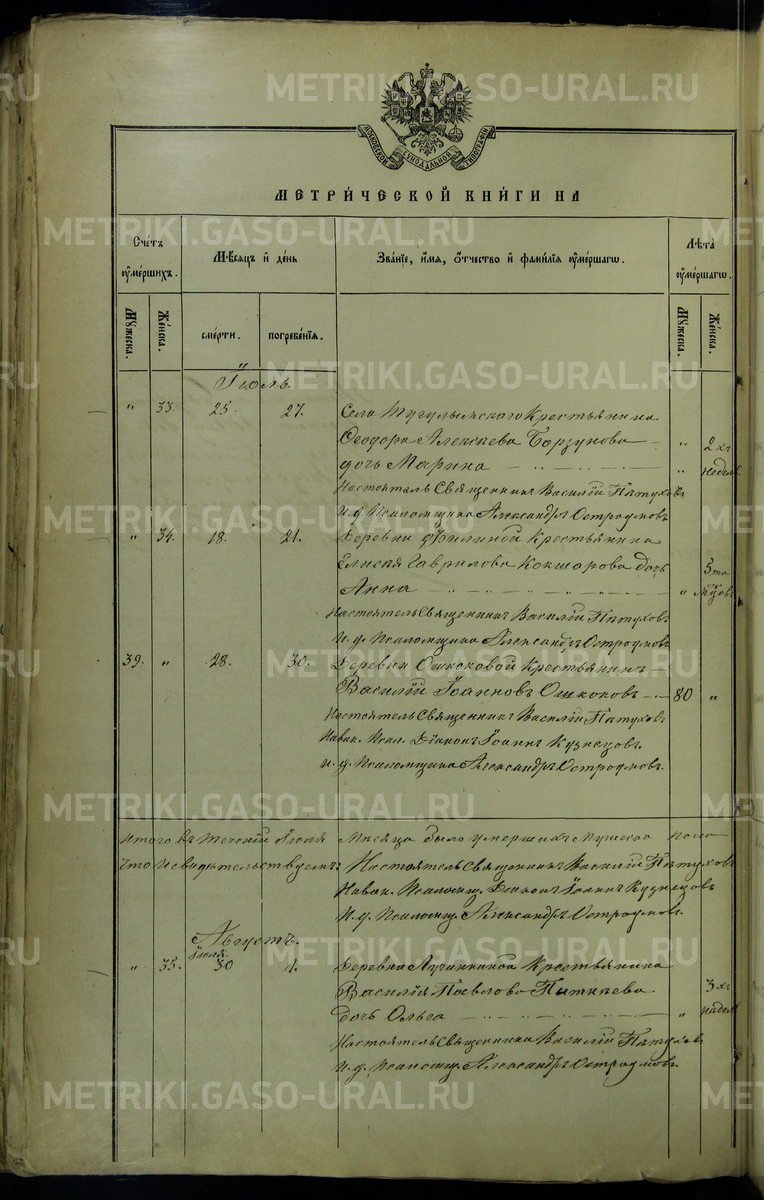 METRIKI.GASO-URAL.RU
МОСКОВСКОЙ СѴНОДАЛЬНОЙ ТИПОГРАФІИ
МЕТРИ́ЧЕСКОЙ КНИ́ГИ НА
Сче́тъ ᲂу҆ме́ршихъ.
Мѣ́сяцъ и҆ де́нь
Зва́нїе, и҆́мя, ѻ҆́тчество и҆ фами́лїя ᲂу҆ме́ршагѡ.
Лѣ́та ᲂу҆ме́ршагѡ.
Мꙋ́жеска.
Же́нска.
сме́рти.
погребе́нїя.
Мꙋ́жеска.
Же́нска.
Іюль.
„ 33. 25. 27. Села Тугулымскаго крестьянина
Ѳеодора Алексѣева Борзунова „ 2хъ
дочь Марина „ недель
Настоятель Священникъ Василій Пѣтуховъ
И. д. Псаломщика Александръ Остроумовъ
„ 34. 18. 21. Деревни Филиной крестьянина
Елисѣя Гаврилова Кокшарова дочь 5ти
Анна „ мѣсяц.
Настоятель Священникъ Василій Пѣтуховъ
И. д. Псаломщика Александръ Остроумовъ
39. „ 28. 30. Деревни Ошкоковой крестьянинъ
Василій Іоанновъ Ошкоковъ 80 „
Настоятель Священникъ Василій Пѣтуховъ
На вак. Псал. Діаконъ Іоаннъ Кузнецовъ.
И. д. Псаломщика Александръ Остроумовъ.
Итого въ теченіи Іюля мѣсяца было умершихъ мужеска пола
Что и свидѣтельствуемъ: Настоятель Священникъ Василій Пѣтуховъ
На вак. Псаломщ. Діаконъ Іоаннъ Кузнецовъ
И. д. Псаломщ. Александръ Остроумовъ.
Августъ.
Іюля
„ 35. 30 1. Деревни Лучинкиной крестьянина
Василія Павлова Питкѣева 3хъ
дочь Ольга „ недель
Настоятель Священникъ Василій Пѣтуховъ
И. д. Псаломщ. Александръ Остроумовъ.